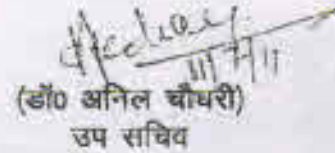 (डॉ0 अनिल चौधरी)
उप सचिव